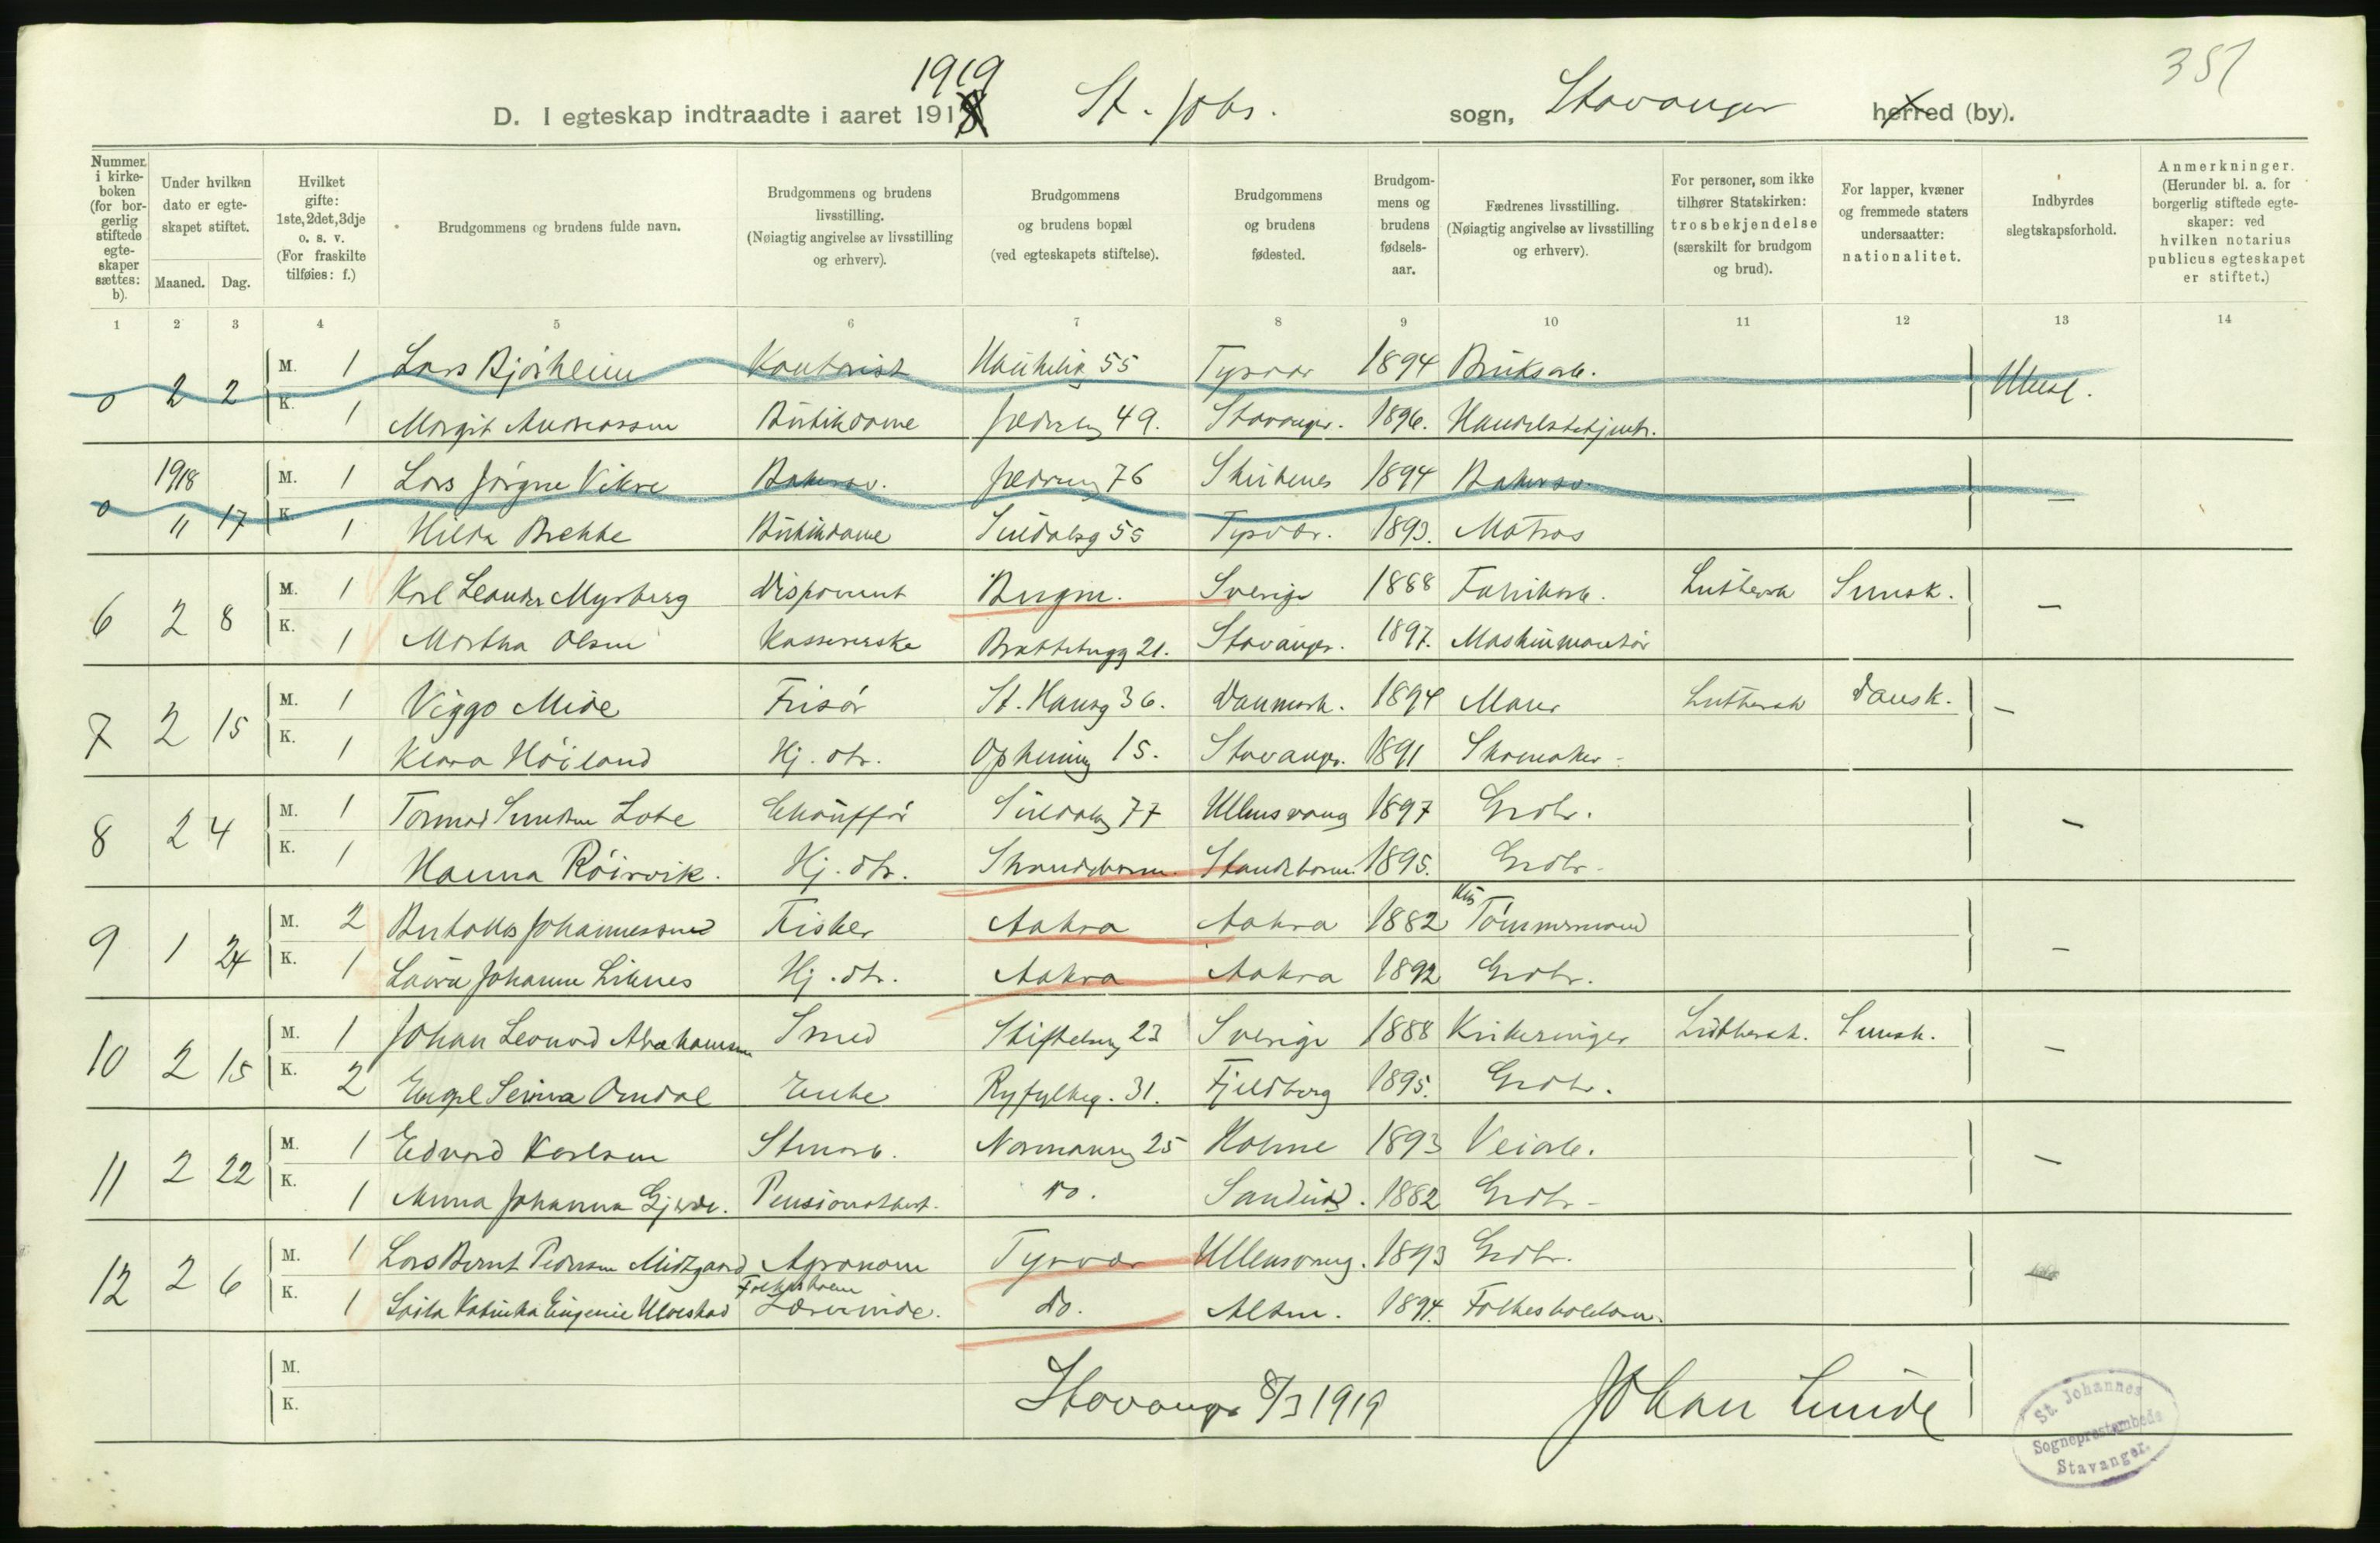 351
1919
D. I egteskap indtraadte i aaret 1918 St. Johs. sogn, Stavanger herred (by).
Nummer i kirkeboken (for borgerlig stiftede egteskaper sættes: b).
Under hvilken dato er egteskapet stiftet.
Maaned. Dag.
Hvilket gifte: 1ste, 2det, 3dje o. s. v. (For fraskilte tilføies: f.)
Brudgommens og brudens fulde navn.
Brudgommens og brudens livsstilling. (Nøiagtig angivelse av livsstilling og erhverv).
Brudgommens og brudens bopæl (ved egteskapets stiftelse).
Brudgommens og brudens fødested.
Brudgommens og brudens fødselsaar.
Fædrenes livsstilling. (Nøiagtig angivelse av livsstilling og erhverv).
For personer, som ikke tilhører Statskirken: trosbekjendelse (særskilt for brudgom og brud).
For lapper, kvæner og fremmede staters undersaatter: nationalitet.
Indbyrdes slegtskapsforhold.
Anmerkninger. (Herunder bl. a. for borgerlig stiftede egteskaper: ved hvilken notarius publicus egteskapet er stiftet.)
1 2 3 4 5 6 7 8 9 10 11 12 13 14
0 2 2 M. 1 Lars Bjørheim Kontorist 55 Tysvær 1894 Bruksarb. Ubesl.
K. 1 Margit Andreassen Butikdame Jædervg 49. Stavanger. 1896. Handelsbetjent.
1918
0 11 17 M. 1 Lars Jørgen Vikre Bakersv. Jæderveg 76 Skudenes 1894 Bakersv. —
K. 1 Hilda Brekke Butikdame Suldalsg 55 Tysvær. 1893. Matros
6 2 8 M. 1 Karl Leander Myrberg Disponent Bergen. Sverige 1888 Fabrikarb. Luthersk Svensk. —
K. 1 Martha Olsen Kassererske Brattebugg 21. Stavanger. 1897. Maskinmontør
7 2 15 M. 1 Viggo Mide Frisør St. Hansg 36. Danmark. 1894 Maler Luthersk Dansk. —
K. 1 Klara Høiland Hj. dtr. Opheimsg 15. Stavanger. 1891 Skomaker.
8 2 4 M. 1 Tormod Lote Chauffør Suldalsg 77 Ullensvang 1897 Grdbr. —
K. 1 Hanna Røirvik. Hj. dtr. Strandebarm. Strandebarm. 1895. Grdbr.
9 1 24 M. 2 Johannessen Fisker Aakra Aakra 1882 Tømmermand —
K. 1 Laura Johanne Liknes Hj. dtr. Aakra Aakra 1892 Grdbr.
10 2 15 M. 1 Johan Leonard Abrahamsen Smed Stiftelsesg 23 Sverige 1888 Kirkeringer Luthersk. Svensk. —
K. 2 Engel Serina Omdal Enke Ryfylkeg. 31. Fjeldberg 1895. Grdbr.
11 2 22 M. 1 Edvard Karlsen Stenarb. Normansg 25 Holme 1893 Veiarb. —
K. 1 Anna Johanna Gjerde. Pensionatbest. do. Sandeid. 1882 Grdbr.
12 2 6 M. 1 Lars Bernt Pedersen Midtgaard Agronom Tysvær Ullensvang. 1893 Grdbr.
K. 1 Laila Katinka Eugenie Ulvestad Folkeskolelærerinde. do. Alten. 1894. Folkeskolelærer.
M.
K.
Stavanger 8/3 1919 Johan Lunde
St. Johannes Sogneprestembede Stavanger.